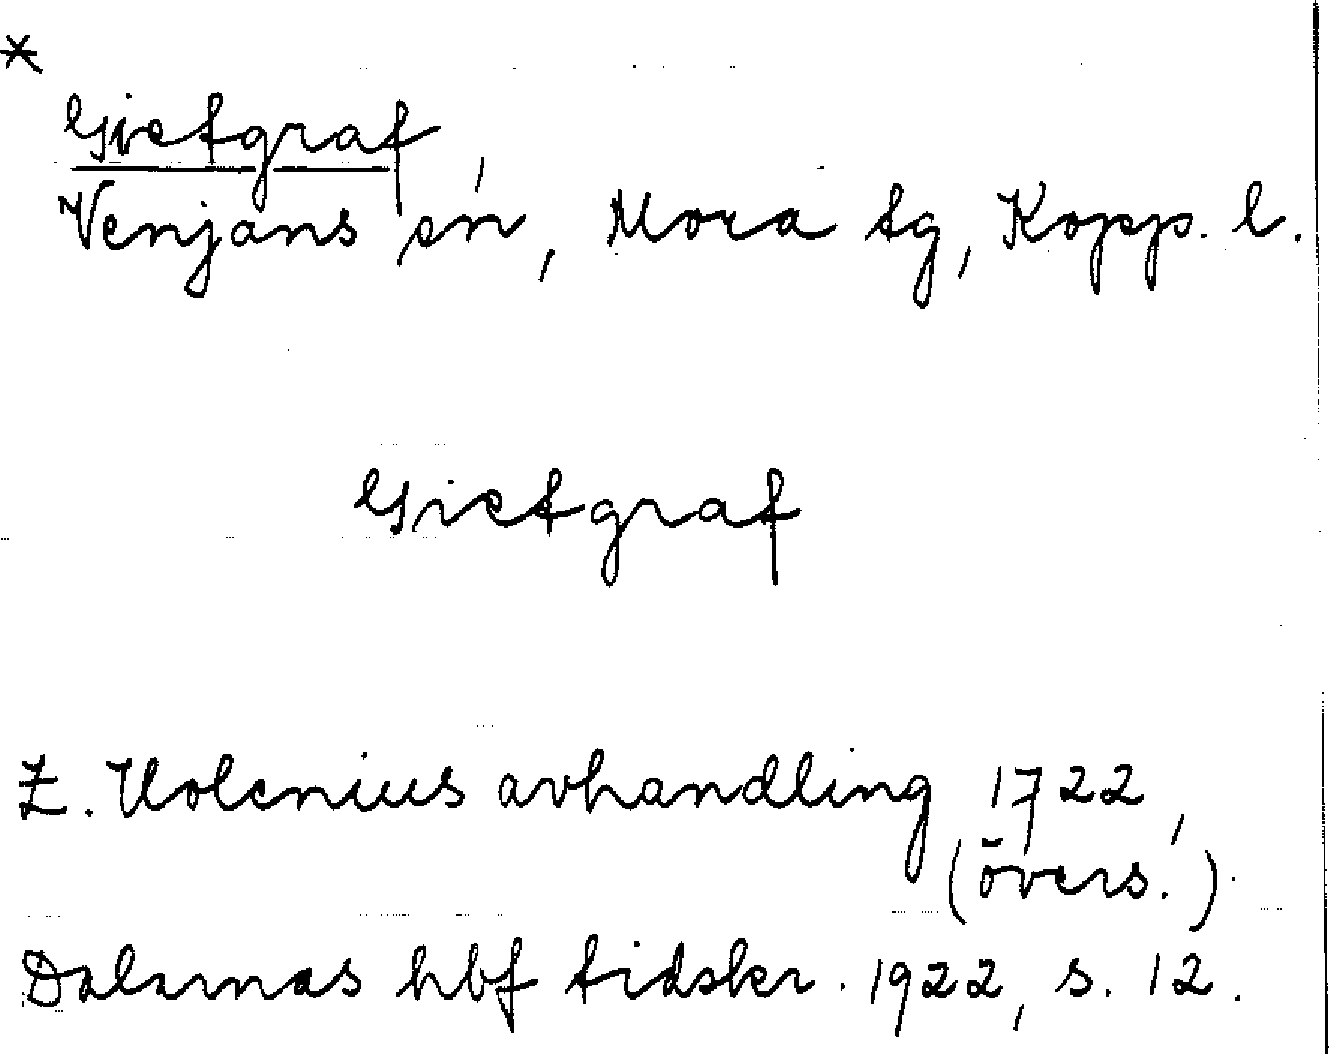 *
Gietgraf
Venjans sn, Mora tg, Kopp. l.
Gietgraf
Z. Holenius avhandling 1722,
(övers.)
Dalarnas hbf tidskr. 1922, s. 12.